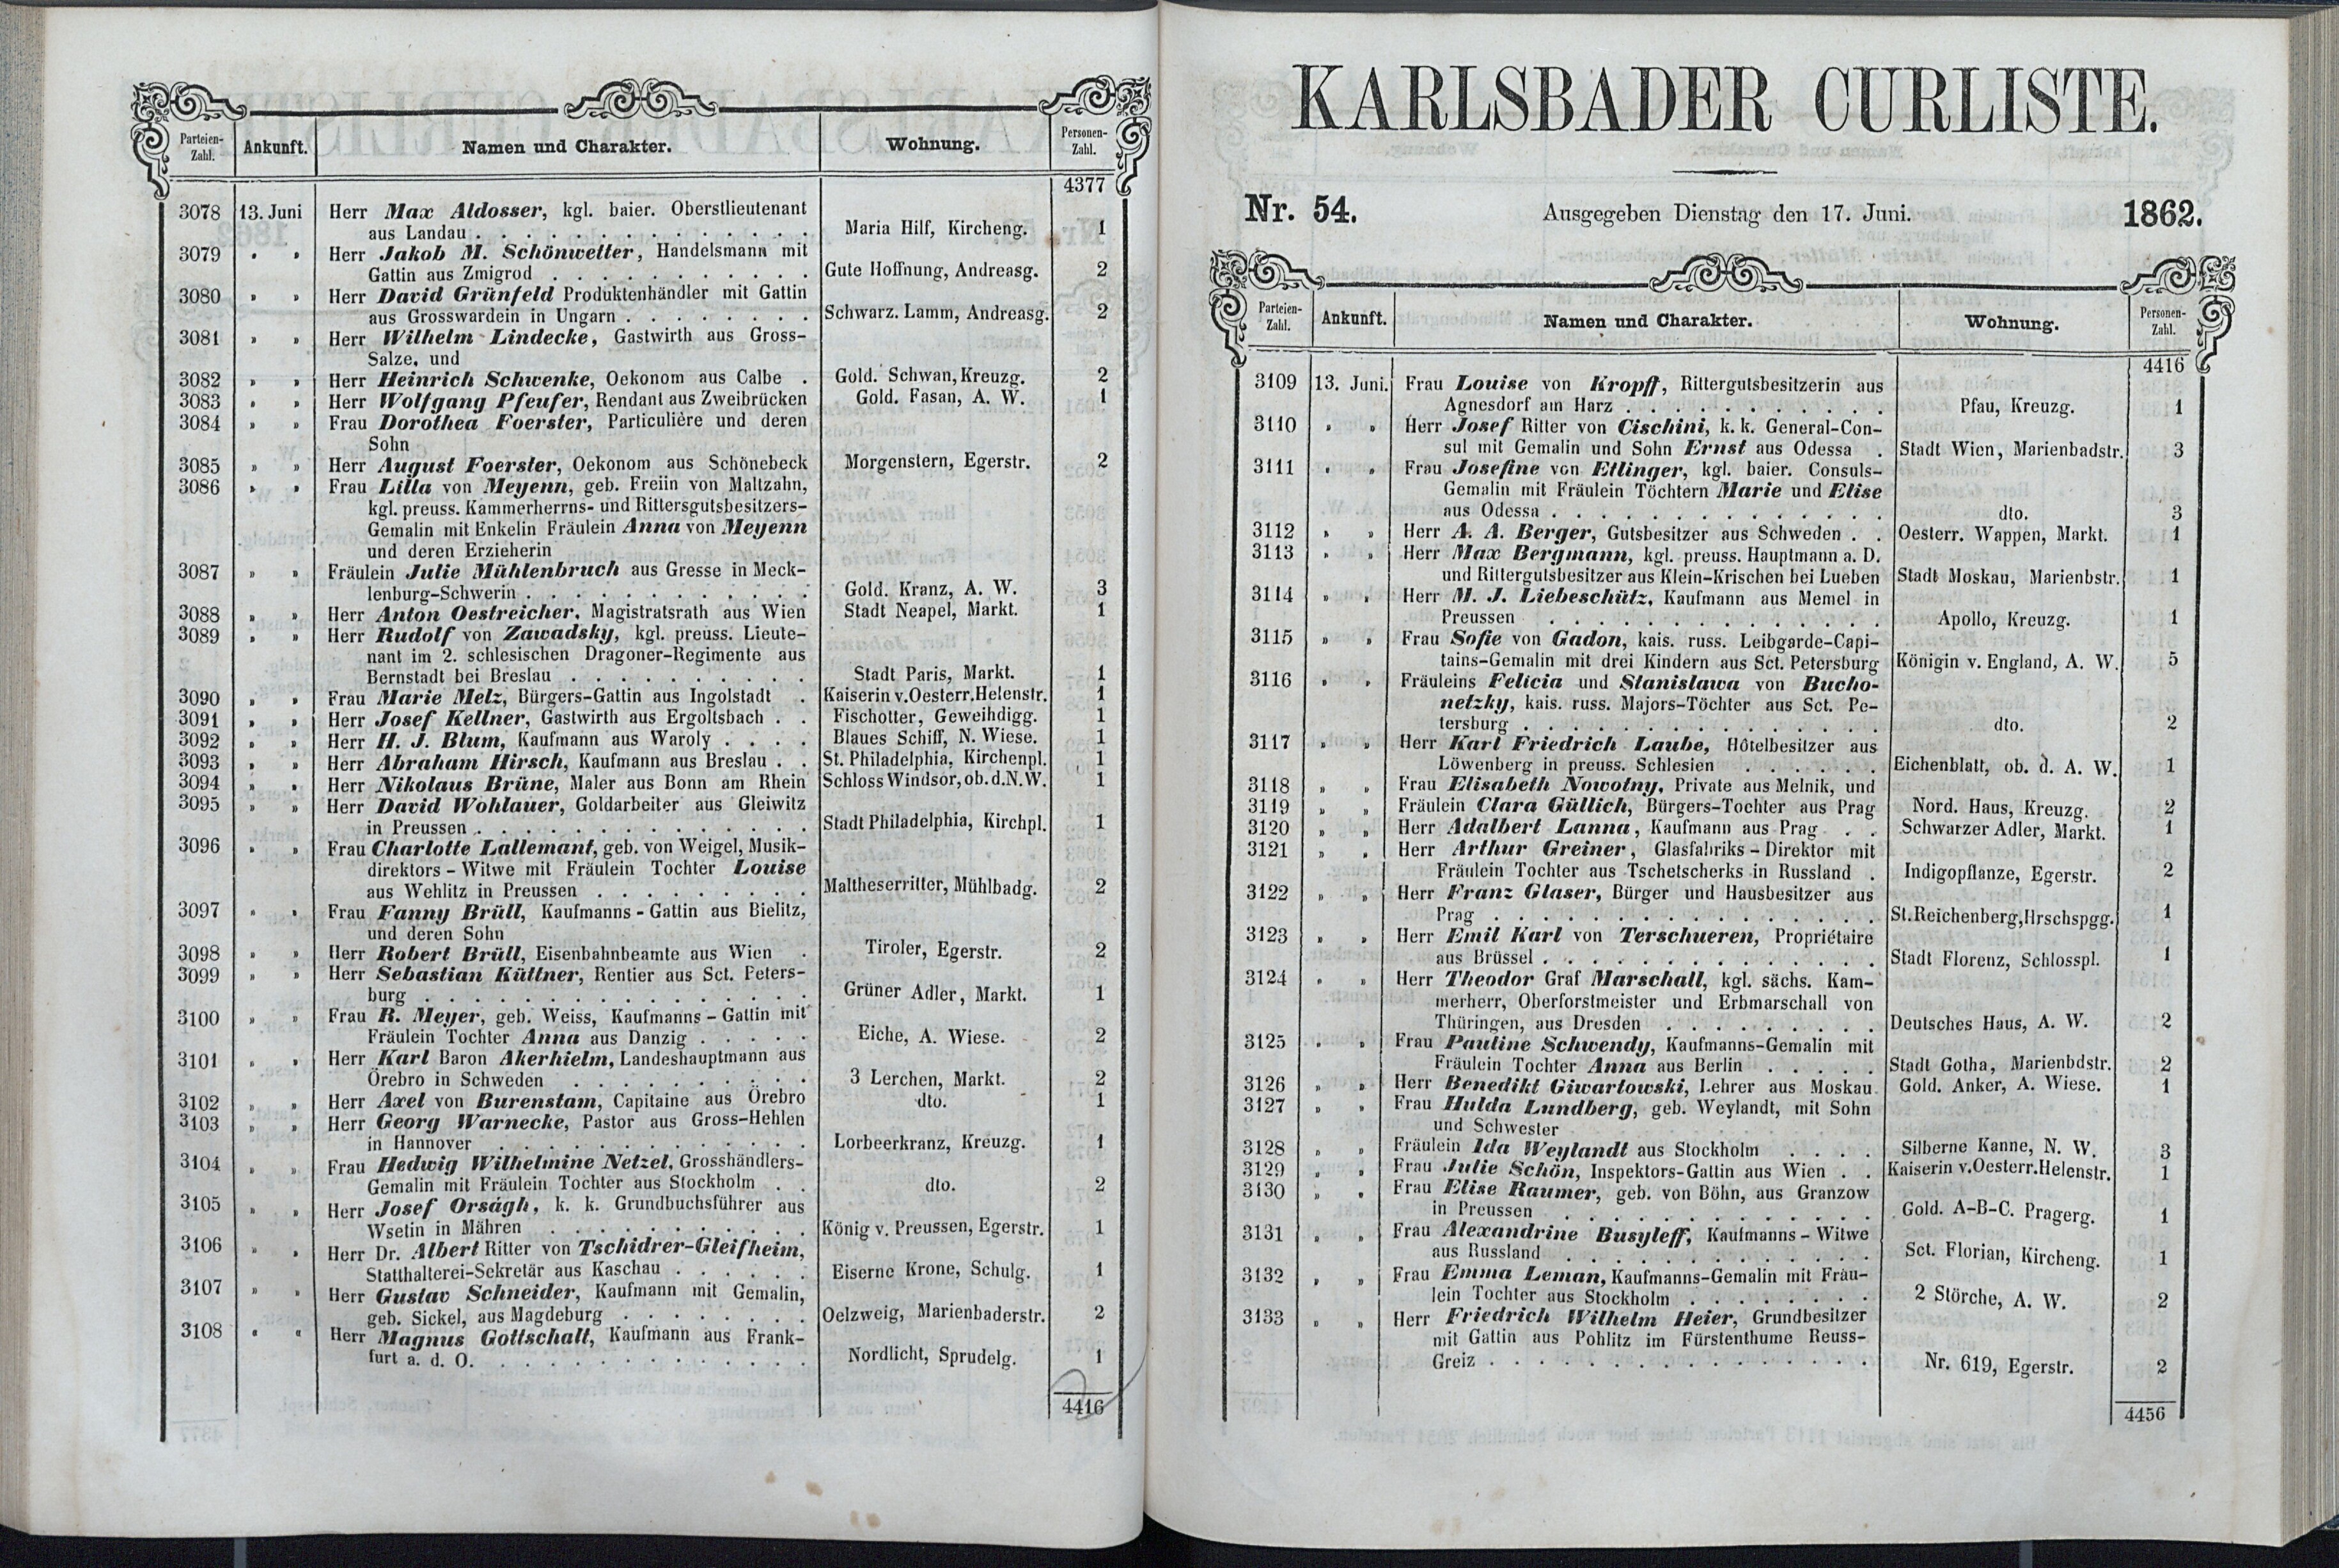 Parteien-Zahl. Ankunft. Namen und Charakter. Wohnung. Personen-Zahl.
4377
3078 13. Juni Herr Max Aldosser, kgl. baier. Oberstlieutenant
aus Landau . . . Maria Hilf, Kircheng. 1
3079 „ „ Herr Jakob M. Schönwetter, Handelsmann mit
Gattin aus Zmigrod . . . Gute Hoffnung, Andreasg. 2
3080 „ „ Herr David Grünfeld Produktenhändler mit Gattin
aus Grosswardein in Ungarn . . . Schwarz. Lamm, Andreasg. 2
3081 „ „ Herr Wilhelm Lindecke, Gastwirth aus Gross-
Salze, und
3082 „ „ Herr Heinrich Schwenke, Oekonom aus Calbe . Gold. Schwan, Kreuzg. 2
3083 „ „ Herr Wolfgang Pfeufer, Rendant aus Zweibrücken Gold. Fasan, A. W. 1
3084 „ „ Frau Dorothea Foerster, Particulière und deren
Sohn
3085 „ „ Herr August Foerster, Oekonom aus Schönebeck Morgenstern, Egerstr. 2
3086 „ „ Frau Lilla von Meyenn, geb. Freiin von Maltzahn,
kgl. preuss. Kammerherrns- und Rittersgutsbesitzers-
Gemalin mit Enkelin Fräulein Anna von Meyenn
und deren Erzieherin
3087 „ „ Fräulein Julie Mühlenbruch aus Gresse in Meck-
lenburg-Schwerin . . . Gold. Kranz, A. W. 3
3088 „ „ Herr Anton Oestreicher, Magistratsrath aus Wien Stadt Neapel, Markt. 1
3089 „ „ Herr Rudolf von Zawadsky, kgl. preuss. Lieute-
nant im 2. schlesischen Dragoner-Regimente aus
Bernstadt bei Breslau . . . Stadt Paris, Markt. 1
3090 „ „ Frau Marie Melz, Bürgers-Gattin aus Ingolstadt . Kaiserin v.Oesterr.Helenstr. 1
3091 „ „ Herr Josef Kellner, Gastwirth aus Ergoltsbach . . Fischotter, Geweihdigg. 1
3092 „ „ Herr H. J. Blum, Kaufmann aus Waroly . . . . Blaues Schiff, N. Wiese. 1
3093 „ „ Herr Abraham Hirsch, Kaufmann aus Breslau . . St. Philadelphia, Kirchenpl. 1
3094 „ „ Herr Nikolaus Brüne, Maler aus Bonn am Rhein Schloss Windsor, ob.d.N.W. 1
3095 „ „ Herr David Wohlauer, Goldarbeiter aus Gleiwitz
in Preussen . . . Stadt Philadelphia, Kirchpl. 1
3096 „ „ Frau Charlotte Lallemant, geb. von Weigel, Musik-
direktors - Witwe mit Fräulein Tochter Louise
aus Wehlitz in Preussen . . . Maltheserritter, Mühlbadg. 2
3097 „ „ Frau Fanny Brüll, Kaufmanns - Gattin aus Bielitz,
und deren Sohn
3098 „ „ Herr Robert Brüll, Eisenbahnbeamte aus Wien . Tiroler, Egerstr. 2
3099 „ „ Herr Sebastian Küttner, Rentier aus Sct. Peters-
burg . . . Grüner Adler, Markt. 1
3100 „ „ Frau R. Meyer, geb. Weiss, Kaufmanns - Gattin mit
Fräulein Tochter Anna aus Danzig . . . Eiche, A. Wiese. 2
3101 „ „ Herr Karl Baron Akerhielm, Landeshauptmann aus
Örebro in Schweden . . . 3 Lerchen, Markt. 2
3102 „ „ Herr Axel von Burenstam, Capitaine aus Örebro dto. 1
3103 „ „ Herr Georg Warnecke, Pastor aus Gross-Hehlen
in Hannover . . . Lorbeerkranz, Kreuzg. 1
3104 „ „ Frau Hedwig Wilhelmine Netzel, Grosshändlers-
Gemalin mit Fräulein Tochter aus Stockholm . . dto. 2
3105 „ „ Herr Josef Orságh, k. k. Grundbuchsführer aus
Wsetin in Mähren . . . König v. Preussen, Egerstr. 1
3106 „ „ Herr Dr. Albert Ritter von Tschidrer-Gleifheim,
Statthalterei-Sekretär aus Kaschau . . . Eiserne Krone, Schulg. 1
3107 „ „ Herr Gustav Schneider, Kaufmann mit Gemalin,
geb. Sickel, aus Magdeburg . . . Oelzweig, Marienbaderstr. 2
3108 „ „ Herr Magnus Gottschalt, Kaufmann aus Frank-
furt a. d. O. . . . Nordlicht, Sprudelg. 1
4416
KARLSBADER CURLISTE.
Nr. 54. Ausgegeben Dienstag den 17. Juni. 1862.
Parteien-Zahl. Ankunft. Namen und Charakter. Wohnung. Personen-Zahl.
4416
3109 13. Juni. Frau Louise von Kropff, Rittergutsbesitzerin aus
Agnesdorf am Harz . . . Pfau, Kreuzg. 1
3110 „ „ Herr Josef Ritter von Cischini, k. k. General-Con-
sul mit Gemalin und Sohn Ernst aus Odessa . Stadt Wien, Marienbadstr. 3
3111 „ „ Frau Josefine von Etlinger, kgl. baier. Consuls-
Gemalin mit Fräulein Töchtern Marie und Elise
aus Odessa . . . dto. 3
3112 „ „ Herr A. A. Berger, Gutsbesitzer aus Schweden . . Oesterr. Wappen, Markt. 1
3113 „ „ Herr Max Bergmann, kgl. preuss. Hauptmann a. D.
und Rittergutsbesitzer aus Klein-Krischen bei Lueben Stadt Moskau, Marienbstr. 1
3114 „ „ Herr M. J. Liebeschütz, Kaufmann aus Memel in
Preussen . . . Apollo, Kreuzg. 1
3115 „ „ Frau Sofie von Gadon, kais. russ. Leibgarde-Capi-
tains-Gemalin mit drei Kindern aus Sct. Petersburg Königin v. England, A. W. 5
3116 „ „ Fräuleins Felicia und Stanislawa von Bucho-
netzky, kais. russ. Majors-Töchter aus Sct. Pe-
tersburg . . . dto. 2
3117 „ „ Herr Karl Friedrich Laube, Hôtelbesitzer aus
Löwenberg in preuss. Schlesien . . . Eichenblatt, ob. d. A. W. 1
3118 „ „ Frau Elisabeth Nowotny, Private aus Melnik, und
3119 „ „ Fräulein Clara Güllich, Bürgers-Tochter aus Prag Nord. Haus, Kreuzg. 2
3120 „ „ Herr Adalbert Lanna, Kaufmann aus Prag . . Schwarzer Adler, Markt. 1
3121 „ „ Herr Arthur Greiner, Glasfabriks - Direktor mit
Fräulein Tochter aus Tschetscherks in Russland . Indigopflanze, Egerstr. 2
3122 „ „ Herr Franz Glaser, Bürger und Hausbesitzer aus
Prag . . . St.Reichenberg,Hrschspgg. 1
3123 „ „ Herr Emil Karl von Terschueren, Propriétaire
aus Brüssel . . . Stadt Florenz, Schlosspl. 1
3124 „ „ Herr Theodor Graf Marschall, kgl. sächs. Kam-
merherr, Oberforstmeister und Erbmarschall von
Thüringen, aus Dresden . . . Deutsches Haus, A. W. 2
3125 „ „ Frau Pauline Schwendy, Kaufmanns-Gemalin mit
Fräulein Tochter Anna aus Berlin . . . Stadt Gotha, Marienbdstr. 2
3126 „ „ Herr Benedikt Giwartowski, Lehrer aus Moskau Gold. Anker, A. Wiese. 1
3127 „ „ Frau Hulda Lundberg, geb. Weylandt, mit Sohn
und Schwester
3128 „ „ Fräulein Ida Weylandt aus Stockholm . . . . Silberne Kanne, N. W. 3
3129 „ „ Frau Julie Schön, Inspektors-Gattin aus Wien . . Kaiserin v.Oesterr.Helenstr. 1
3130 „ „ Frau Elise Raumer, geb. von Böhn, aus Granzow
in Preussen . . . Gold. A-B-C. Pragerg. 1
3131 „ „ Frau Alexandrine Busyleff, Kaufmanns - Witwe
aus Russland . . . Sct. Florian, Kircheng. 1
3132 „ „ Frau Emma Leman, Kaufmanns-Gemalin mit Fräu-
lein Tochter aus Stockholm . . . 2 Störche, A. W. 2
3133 „ „ Herr Friedrich Wilhelm Heier, Grundbesitzer
mit Gattin aus Pohlitz im Fürstenthume Reuss-
Greiz . . . Nr. 619, Egerstr. 2
4456